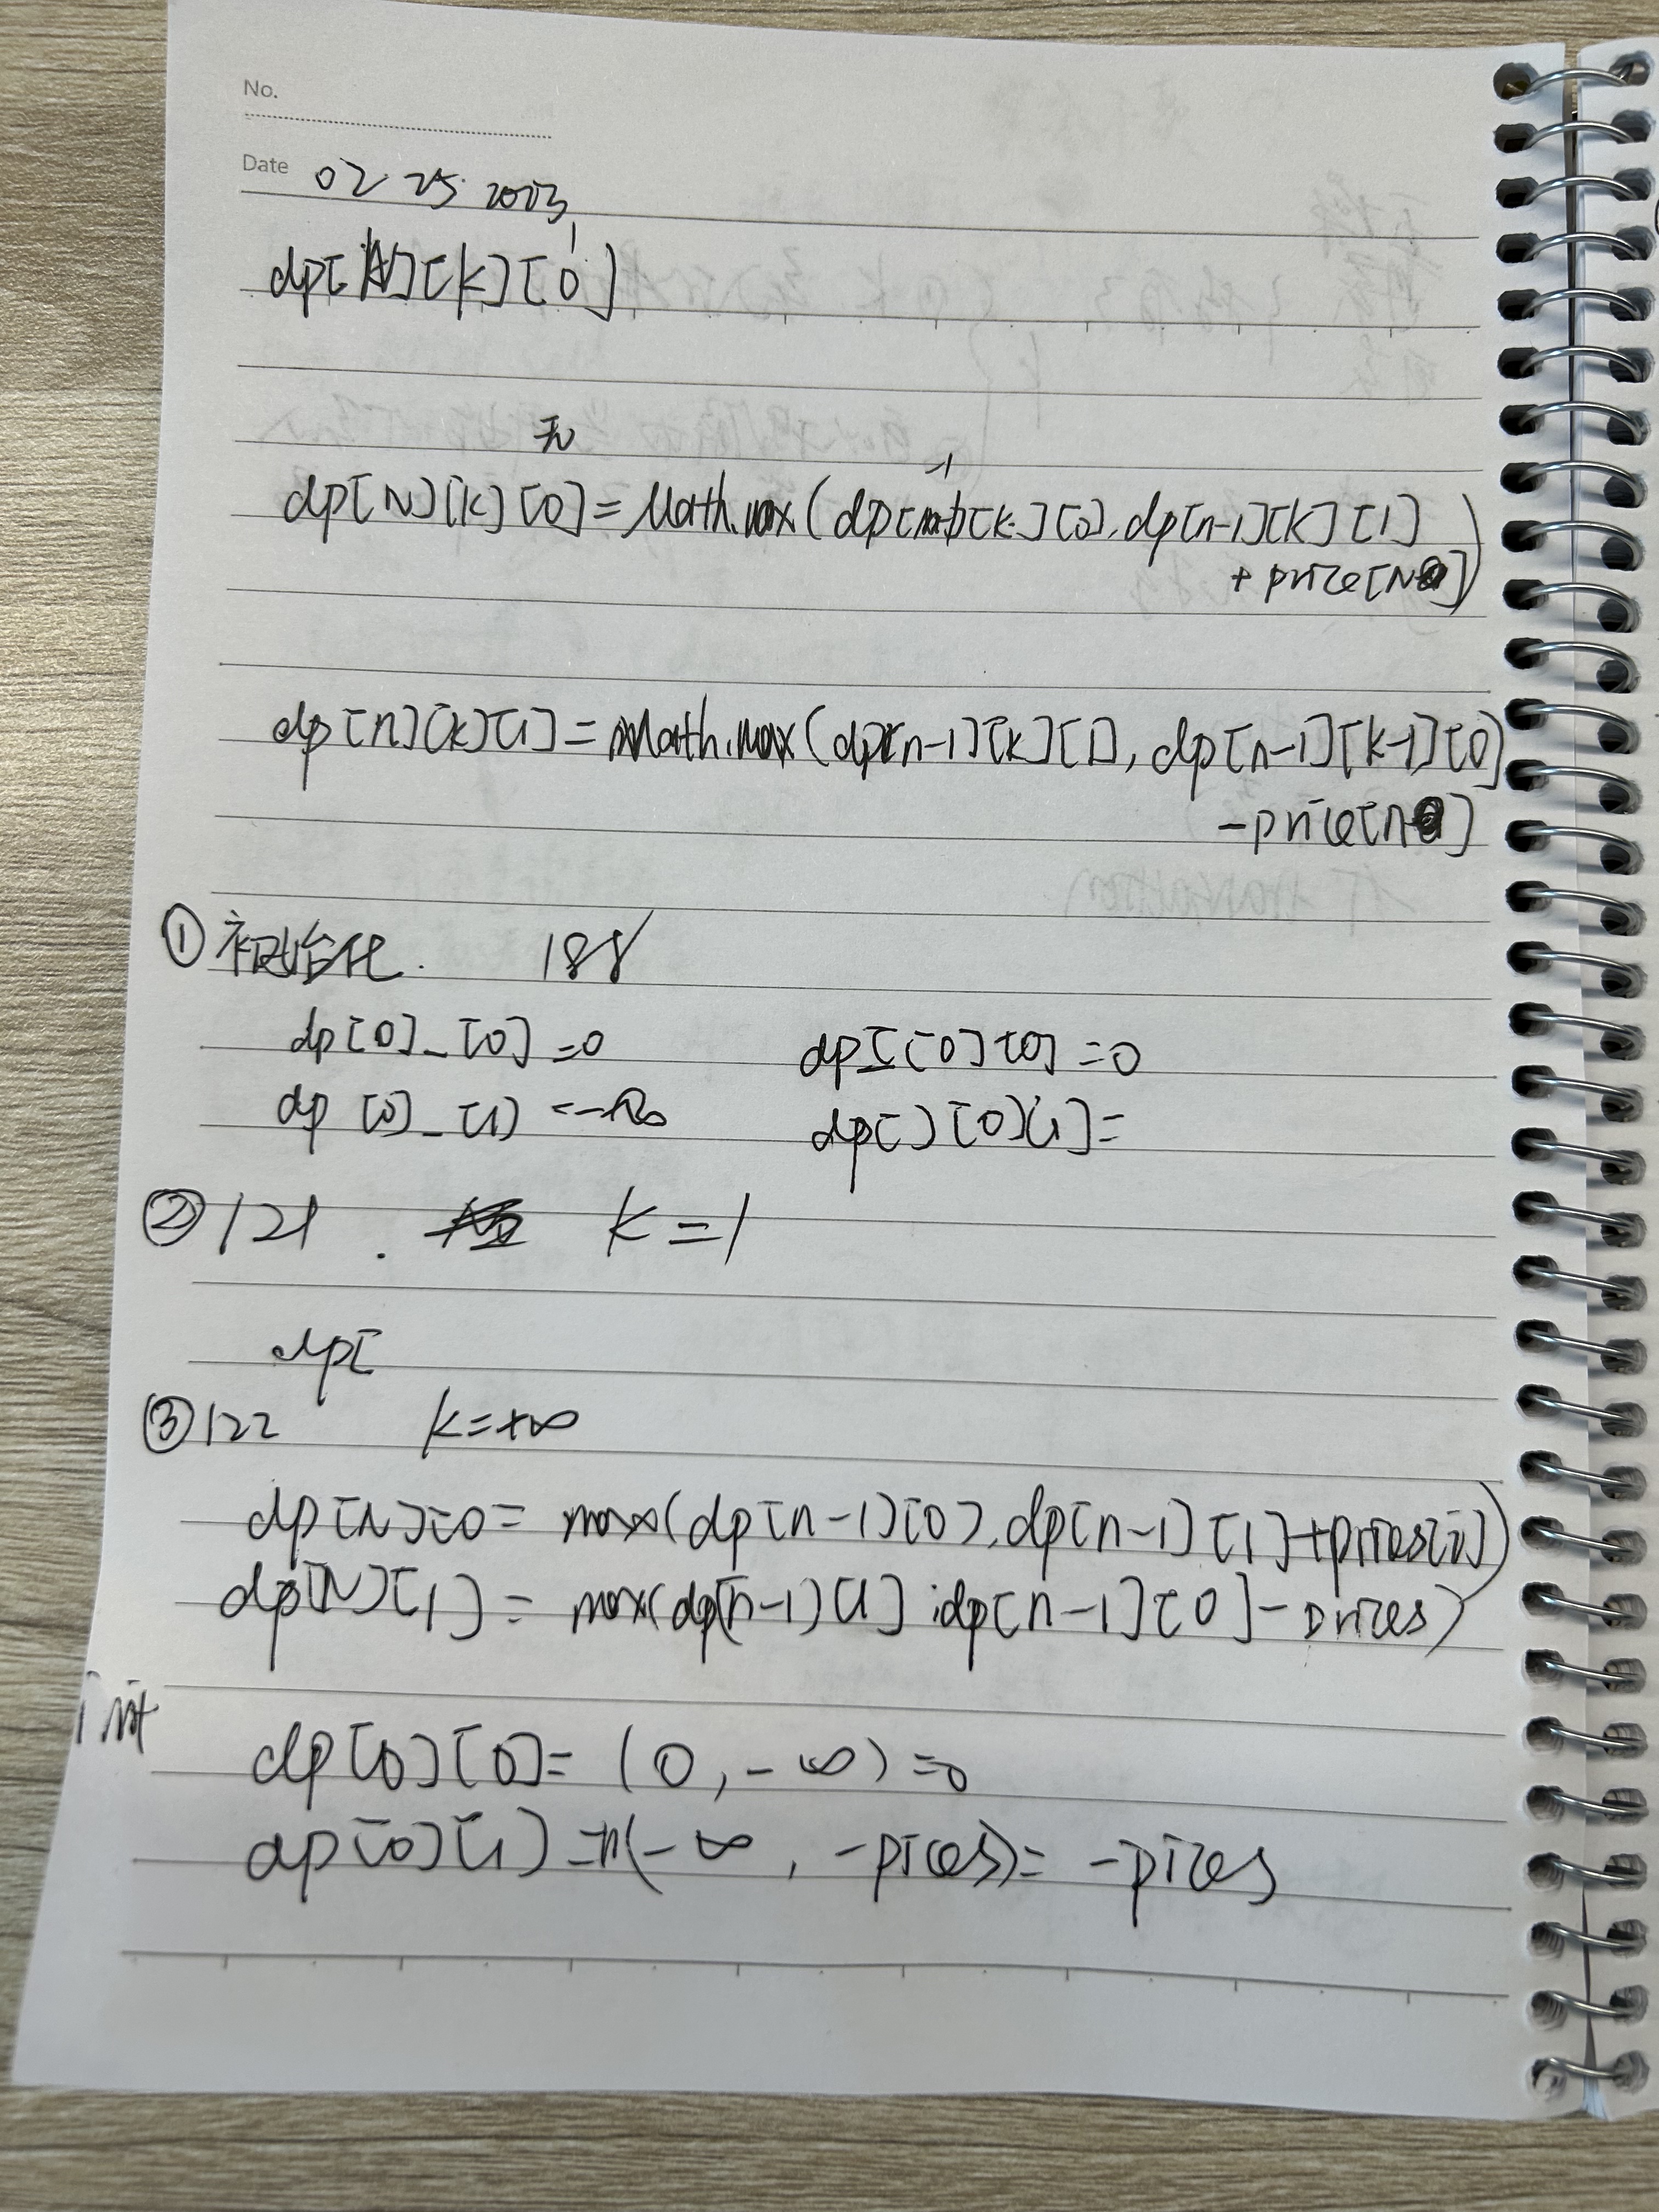 No.
Date 02 25 2023
1
dp[N][k][0]
无
-1
dp[N][k][0]=Math.max(dp[n-1][k][0],dp[n-1][k][1]
+price[N])
dp[n][k][1]=Math.max(dp[n-1][k][1],dp[n-1][k-1][0]
-price[n]
①初始化. 188
dp[0]_[0]=0 dp[][0][0]=0
dp[0]_[1]=-∞ dp[][0][1]=
②121. k=1
dp[
③122 k=+∞
dp[N][0=max(dp[n-1][0],dp[n-1][1]+prices[i])
dp[N][1]=max(dp[n-1][1],dp[n-1][0]-prices)
init
dp[0][0]=(0,-∞)=0
dp[0][1]=(-∞,-prices)=-prices